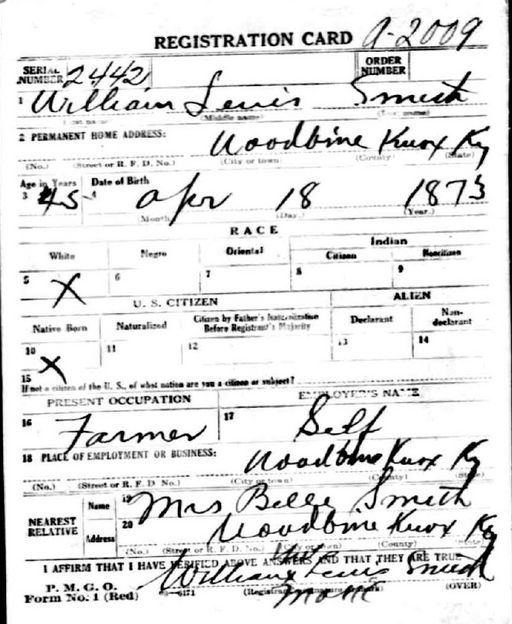 REGISTRATION CARD A-2009
SERIAL NUMBER 2442 ORDER NUMBER
1 William Lewis Smith
(First name) (Middle name) (Last name)
2 PERMANENT HOME ADDRESS: Woodbine Knox Ky
(No.) (Street or R. F. D. No.) (City or town) (County) (State)
Age in Years Date of Birth
3 45 4 Apr 18 1873
(Month.) (Day.) (Year.)
RACE
White Negro Oriental Indian
Citizen Noncitizen
5 X 6 7 8 9
U. S. CITIZEN ALIEN
Native Born Naturalized Citizen by Father's Naturalization Before Registrant's Majority Declarant Non-declarant
10 X 11 12 13 14
15
If not a citizen of the U. S., of what nation are you a citizen or subject?
PRESENT OCCUPATION EMPLOYER'S NAME
16 Farmer 17 Self
18 PLACE OF EMPLOYMENT OR BUSINESS: Woodbine Knox Ky
(No.) (Street or R. F. D. No.) (City or town) (County) (State)
NEAREST RELATIVE Name 19 Mrs Belle Smith
Address 20 Woodbine Knox Ky
(No.) (Street or R. F. D. No.) (City or town) (County) (State)
I AFFIRM THAT I HAVE VERIFIED ABOVE ANSWERS AND THAT THEY ARE TRUE
P. M. G. O. William his X Lewis Smith
Form No. 1 (Red) (Registrant's signature or mark) (OVER)
mark